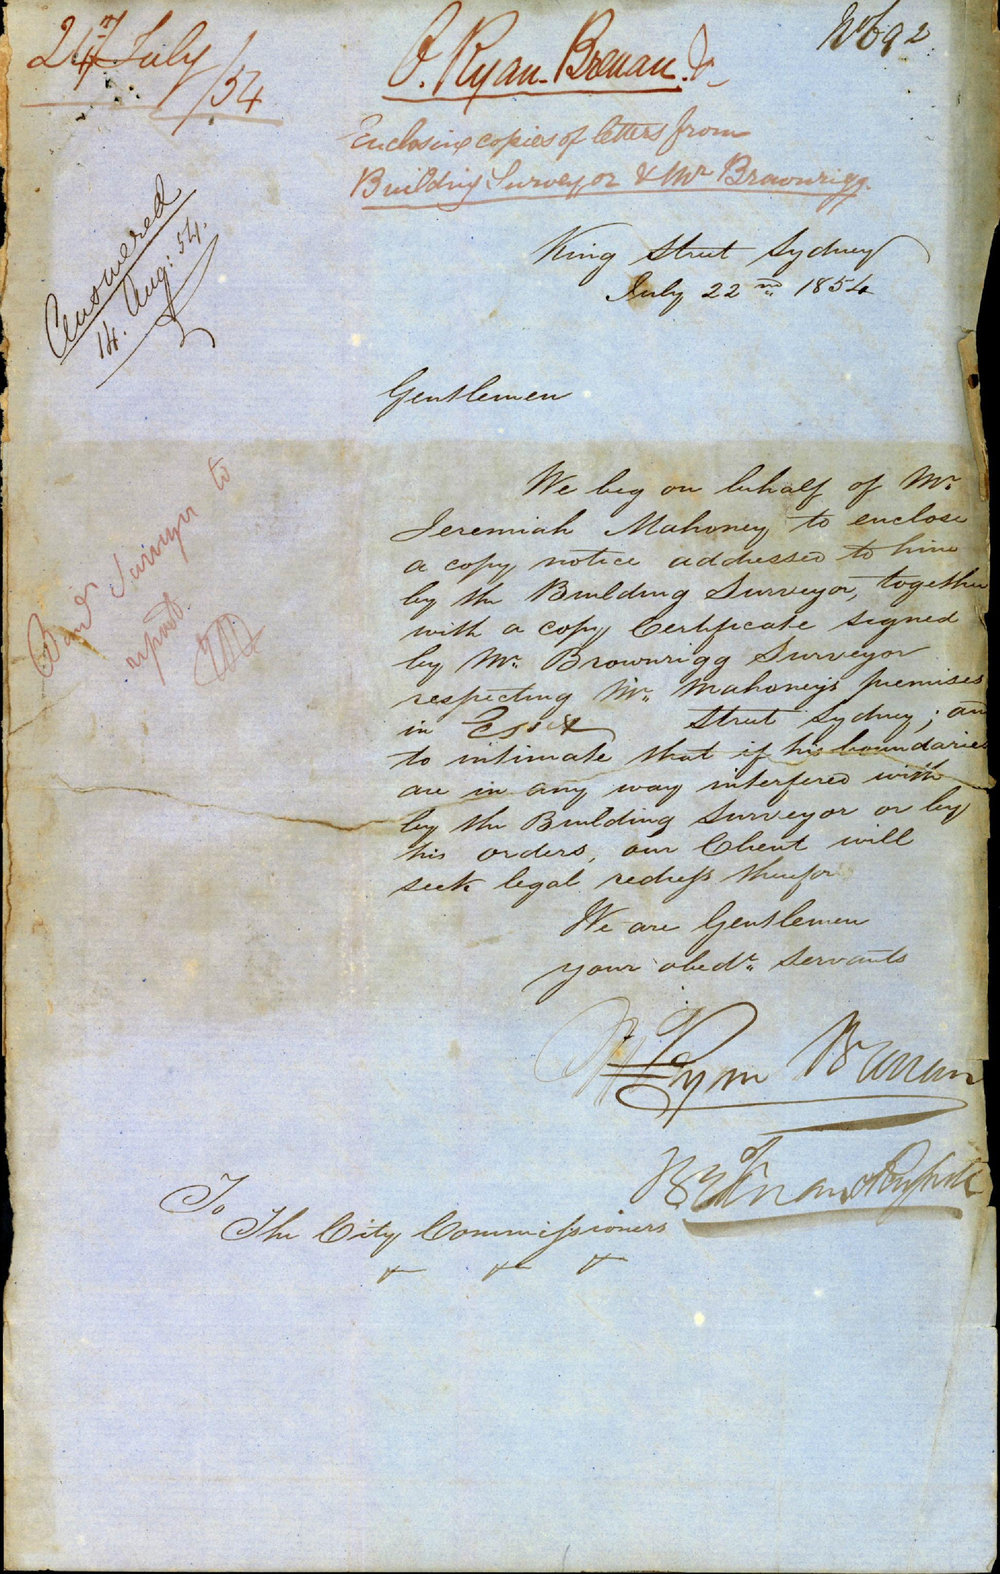 24th July /54
J. Ryan Brenan &
No 692
Enclosing copies of letters from
Building Surveyor & Mr Brownrigg.
Answered
14. Aug: 54.
King Street Sydney
July 22nd 1854
Gentlemen
We beg on behalf of Mr.
Jeremiah Mahoney to enclose
a copy notice addressed to him
by the Building Surveyor, together
with a copy Certificate signed
by Mr. Brownrigg Surveyor
respecting Mr. Mahoney's premises
in Essex Street Sydney; and
to intimate that if his boundaries
are in any way interfered with
by the Building Surveyor or by
his orders, our Client will
seek legal redress therefor
Surveyor to
report
We are Gentlemen
your obedt. Servants
Ryan Brenan
To
The City Commissioners